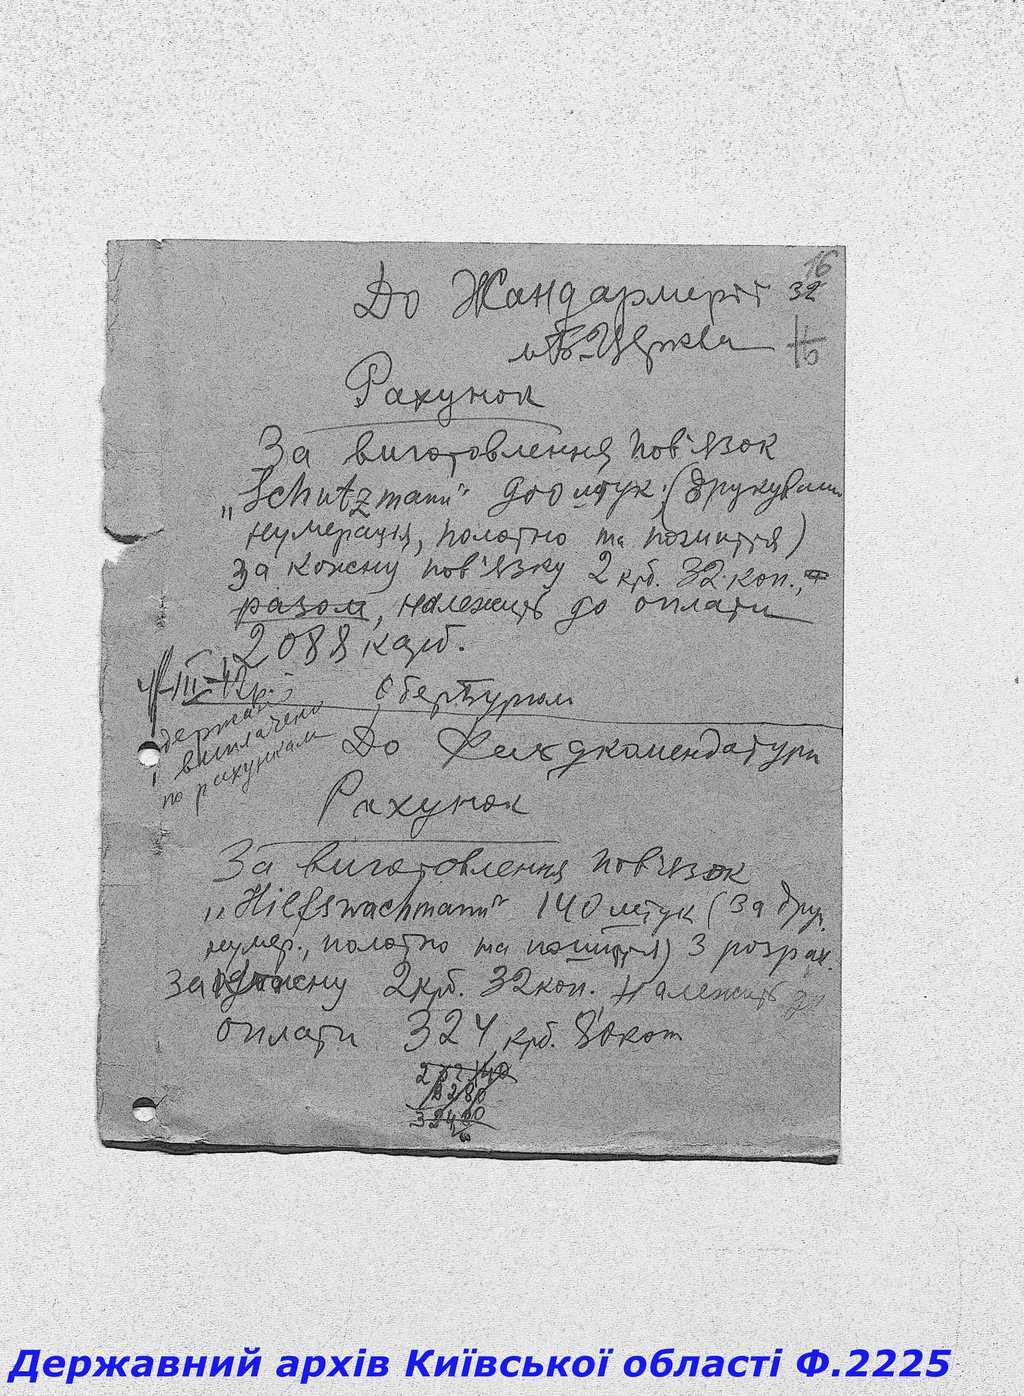 16
До Жандармерії 32
м. Б. Церква
Рахунок
За виготовлення пов'язок
„Schutzmann" 900 штук, (друкування
нумерація, полотно та пошиття)
за кожну пов'язку 2 крб. 32 коп.,
разом, належить до оплати
2088 карб.
4/III-42р.
одержані
і виплачено
по рахункам
Обербургом
До Фельдкомендатури
Рахунок
За виготовлення пов'язок
„Hilfswachmann" 140 штук (за друк.
нумер., полотно та пошиття) з розрах.
за кожну 2 крб. 32 коп. Належить до
оплати 324 крб. 80 коп
232 140
9280
32480
Державний архів Київської області Ф.2225